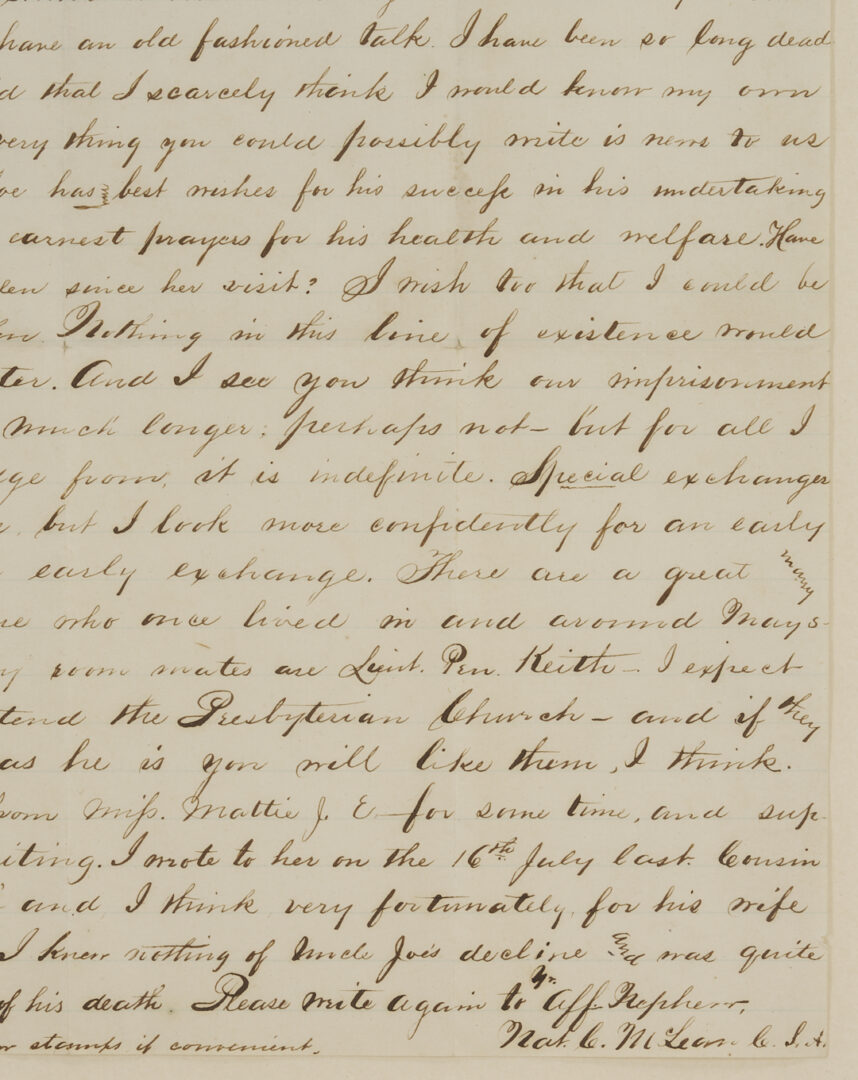 have an old fashioned talk. I have been so long dead
d that I scarcely think I would know my own
very thing you could possibly write is news to us
oe has my best wishes for his success in his undertaking
earnest prayers for his health and welfare. Have
len since her visit? I wish too that I could be
Nothing in this line of existence would
ter. And I see you think our imprisonment
much longer; perhaps not – but for all I
ge from, it is indefinite. Special exchanges
, but I look more confidently for an early
early exchange. There are a great many
ne who once lived in and around Mays-
y room mates are Lieut. Pen. Keith – I expect
tend the Presbyterian Church – and if they
as he is you will like them, I think.
rom Miss. Mattie J. E – for some time, and sup-
iting. I wrote to her on the 16th July last. Cousin
and I think very fortunately, for his wife
I knew nothing of Uncle Joe's decline and was quite
of his death. Please write again to Yr. Aff Nephew,
w stamps if convenient. Nat. C. McLean. C. S. A.